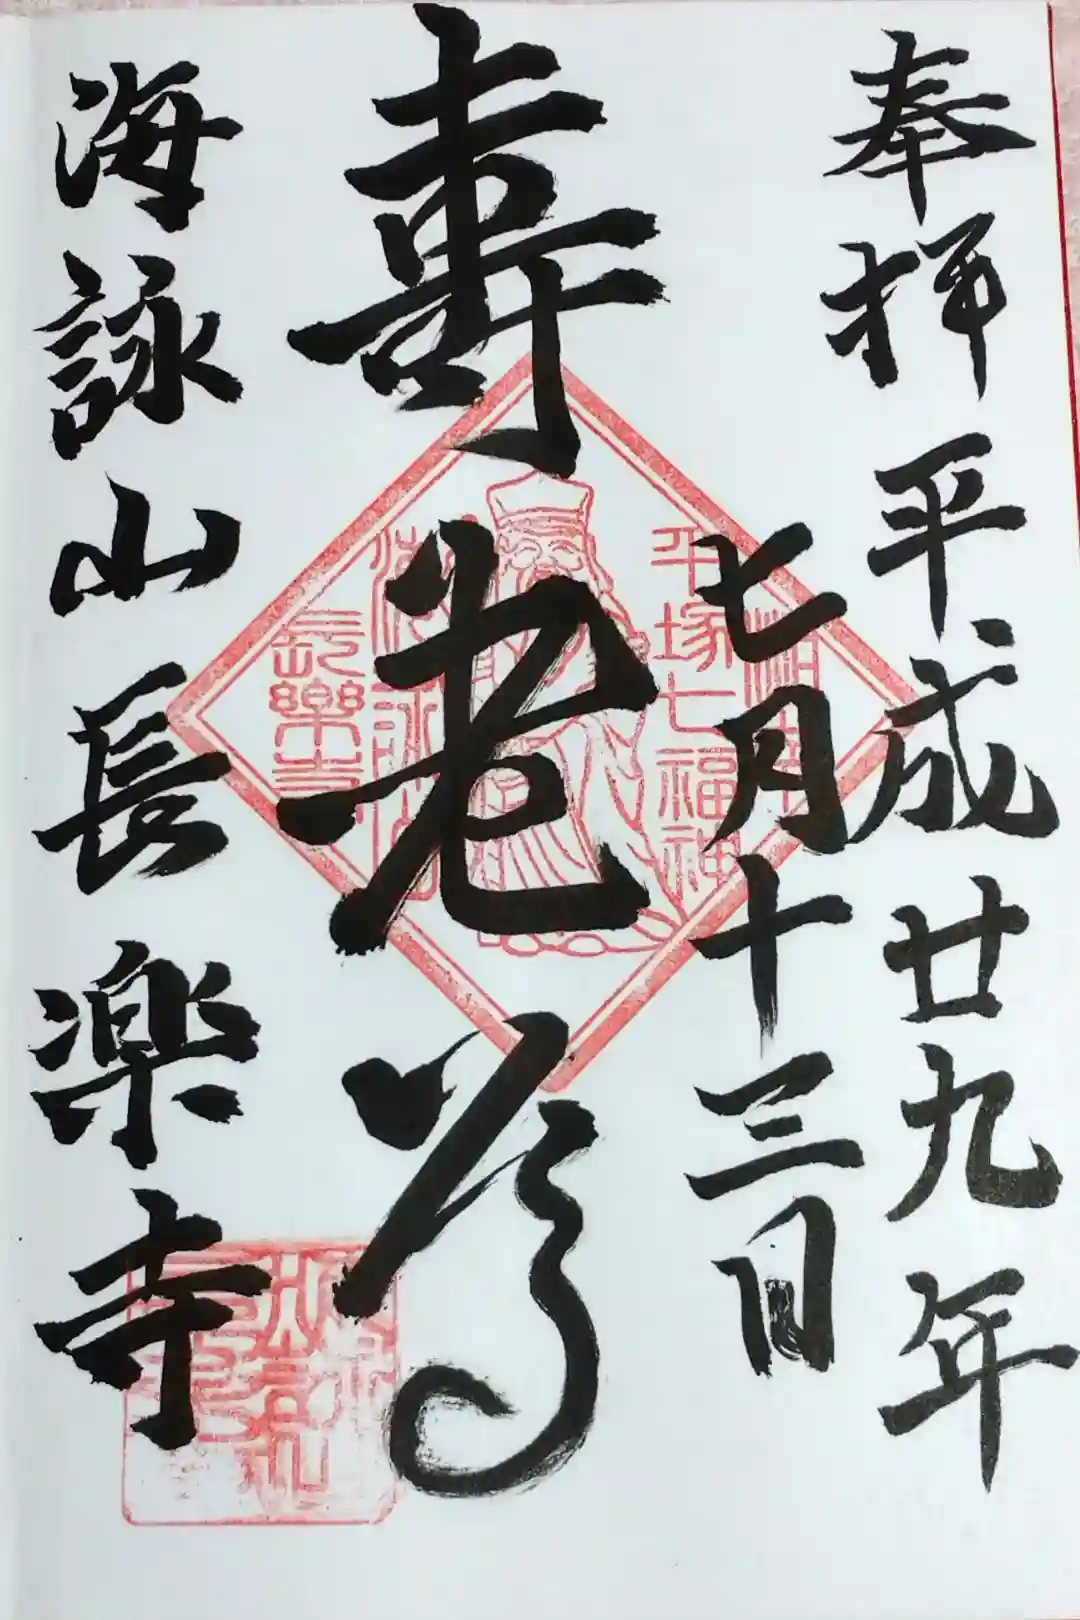 奉拝 平成廿九年
七月十三日
寿老尊
海詠山長楽寺
平塚七福神
長樂寺